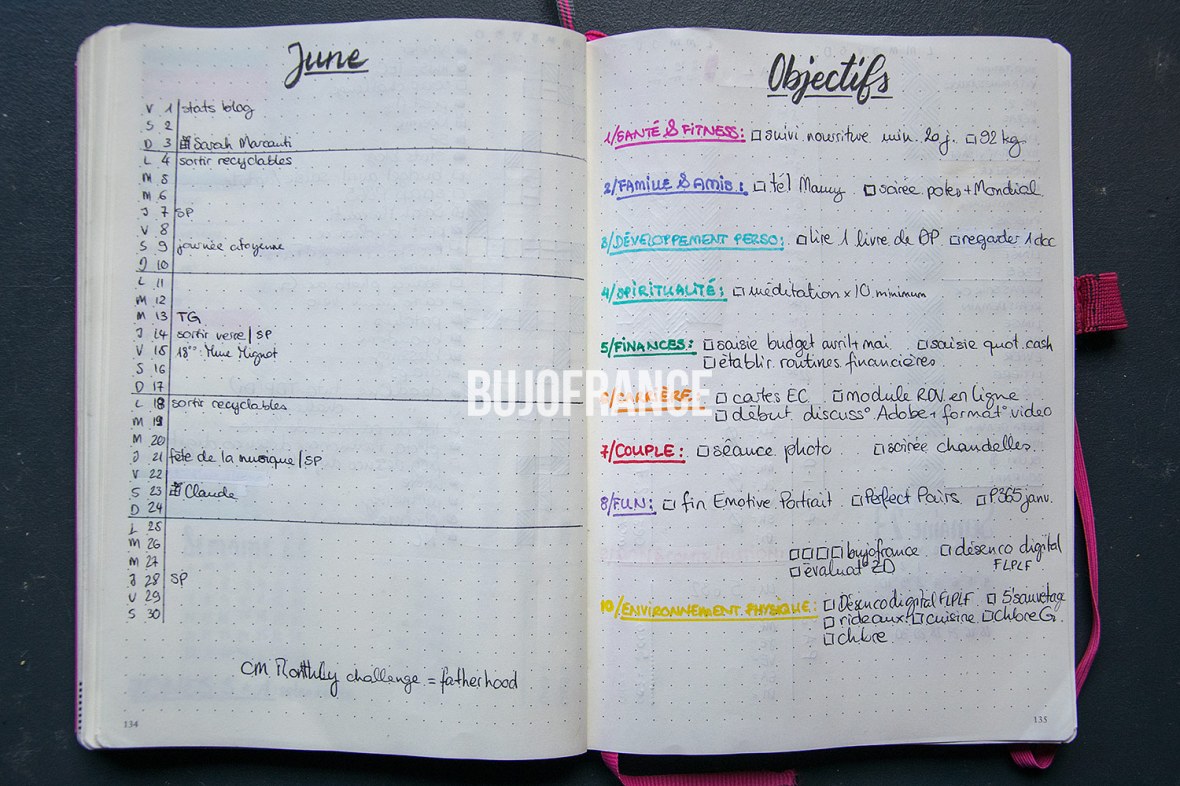 June
V 1 stats blog
S 2
D 3 Sarah Marcanti
L 4 sortir recyclables
M 5
M 6
J 7 SP
V 8
S 9 journée citoyenne
D 10
L 11
M 12
M 13 TG
J 14 sortir verre / SP
V 15 18°° : Mme Mignot
S 16
D 17
L 18 sortir recyclables
M 19
M 20
J 21 fête de la musique / SP
V 22
S 23 Claude
D 24
L 25
M 26
M 27
J 28 SP
V 29
S 30
CM Monthly challenge = fatherhood
134
Objectifs
1/SANTÉ & FITNESS: suivi nourriture min. 20 j. 92 kg
2/FAMILLE & AMIS: tél Mamy soirée potes + Mondial
3/DÉVELOPPEMENT PERSO: lire 1 livre de DP regarder 1 doc
4/SPIRITUALITÉ: méditation x 10 minimum
5/FINANCES: saisie budget avril + mai saisie quot. cash
établir routines financières
6/CARRIÈRE: cartes EC module RDV en ligne
début discuss° Adobe + format° video
7/COUPLE: séance photo soirée chandelles
8/FUN: fin Emotive Portrait Perfect Pairs P365 janv.
bujofrance désenco digital
FLPLF
évaluat° ZD
10/ENVIRONNEMENT PHYSIQUE: Désenco digital FLPLF S' sauvetage
rideaux! cuisine chbre G.
chbre
135
BUJOFRANCE